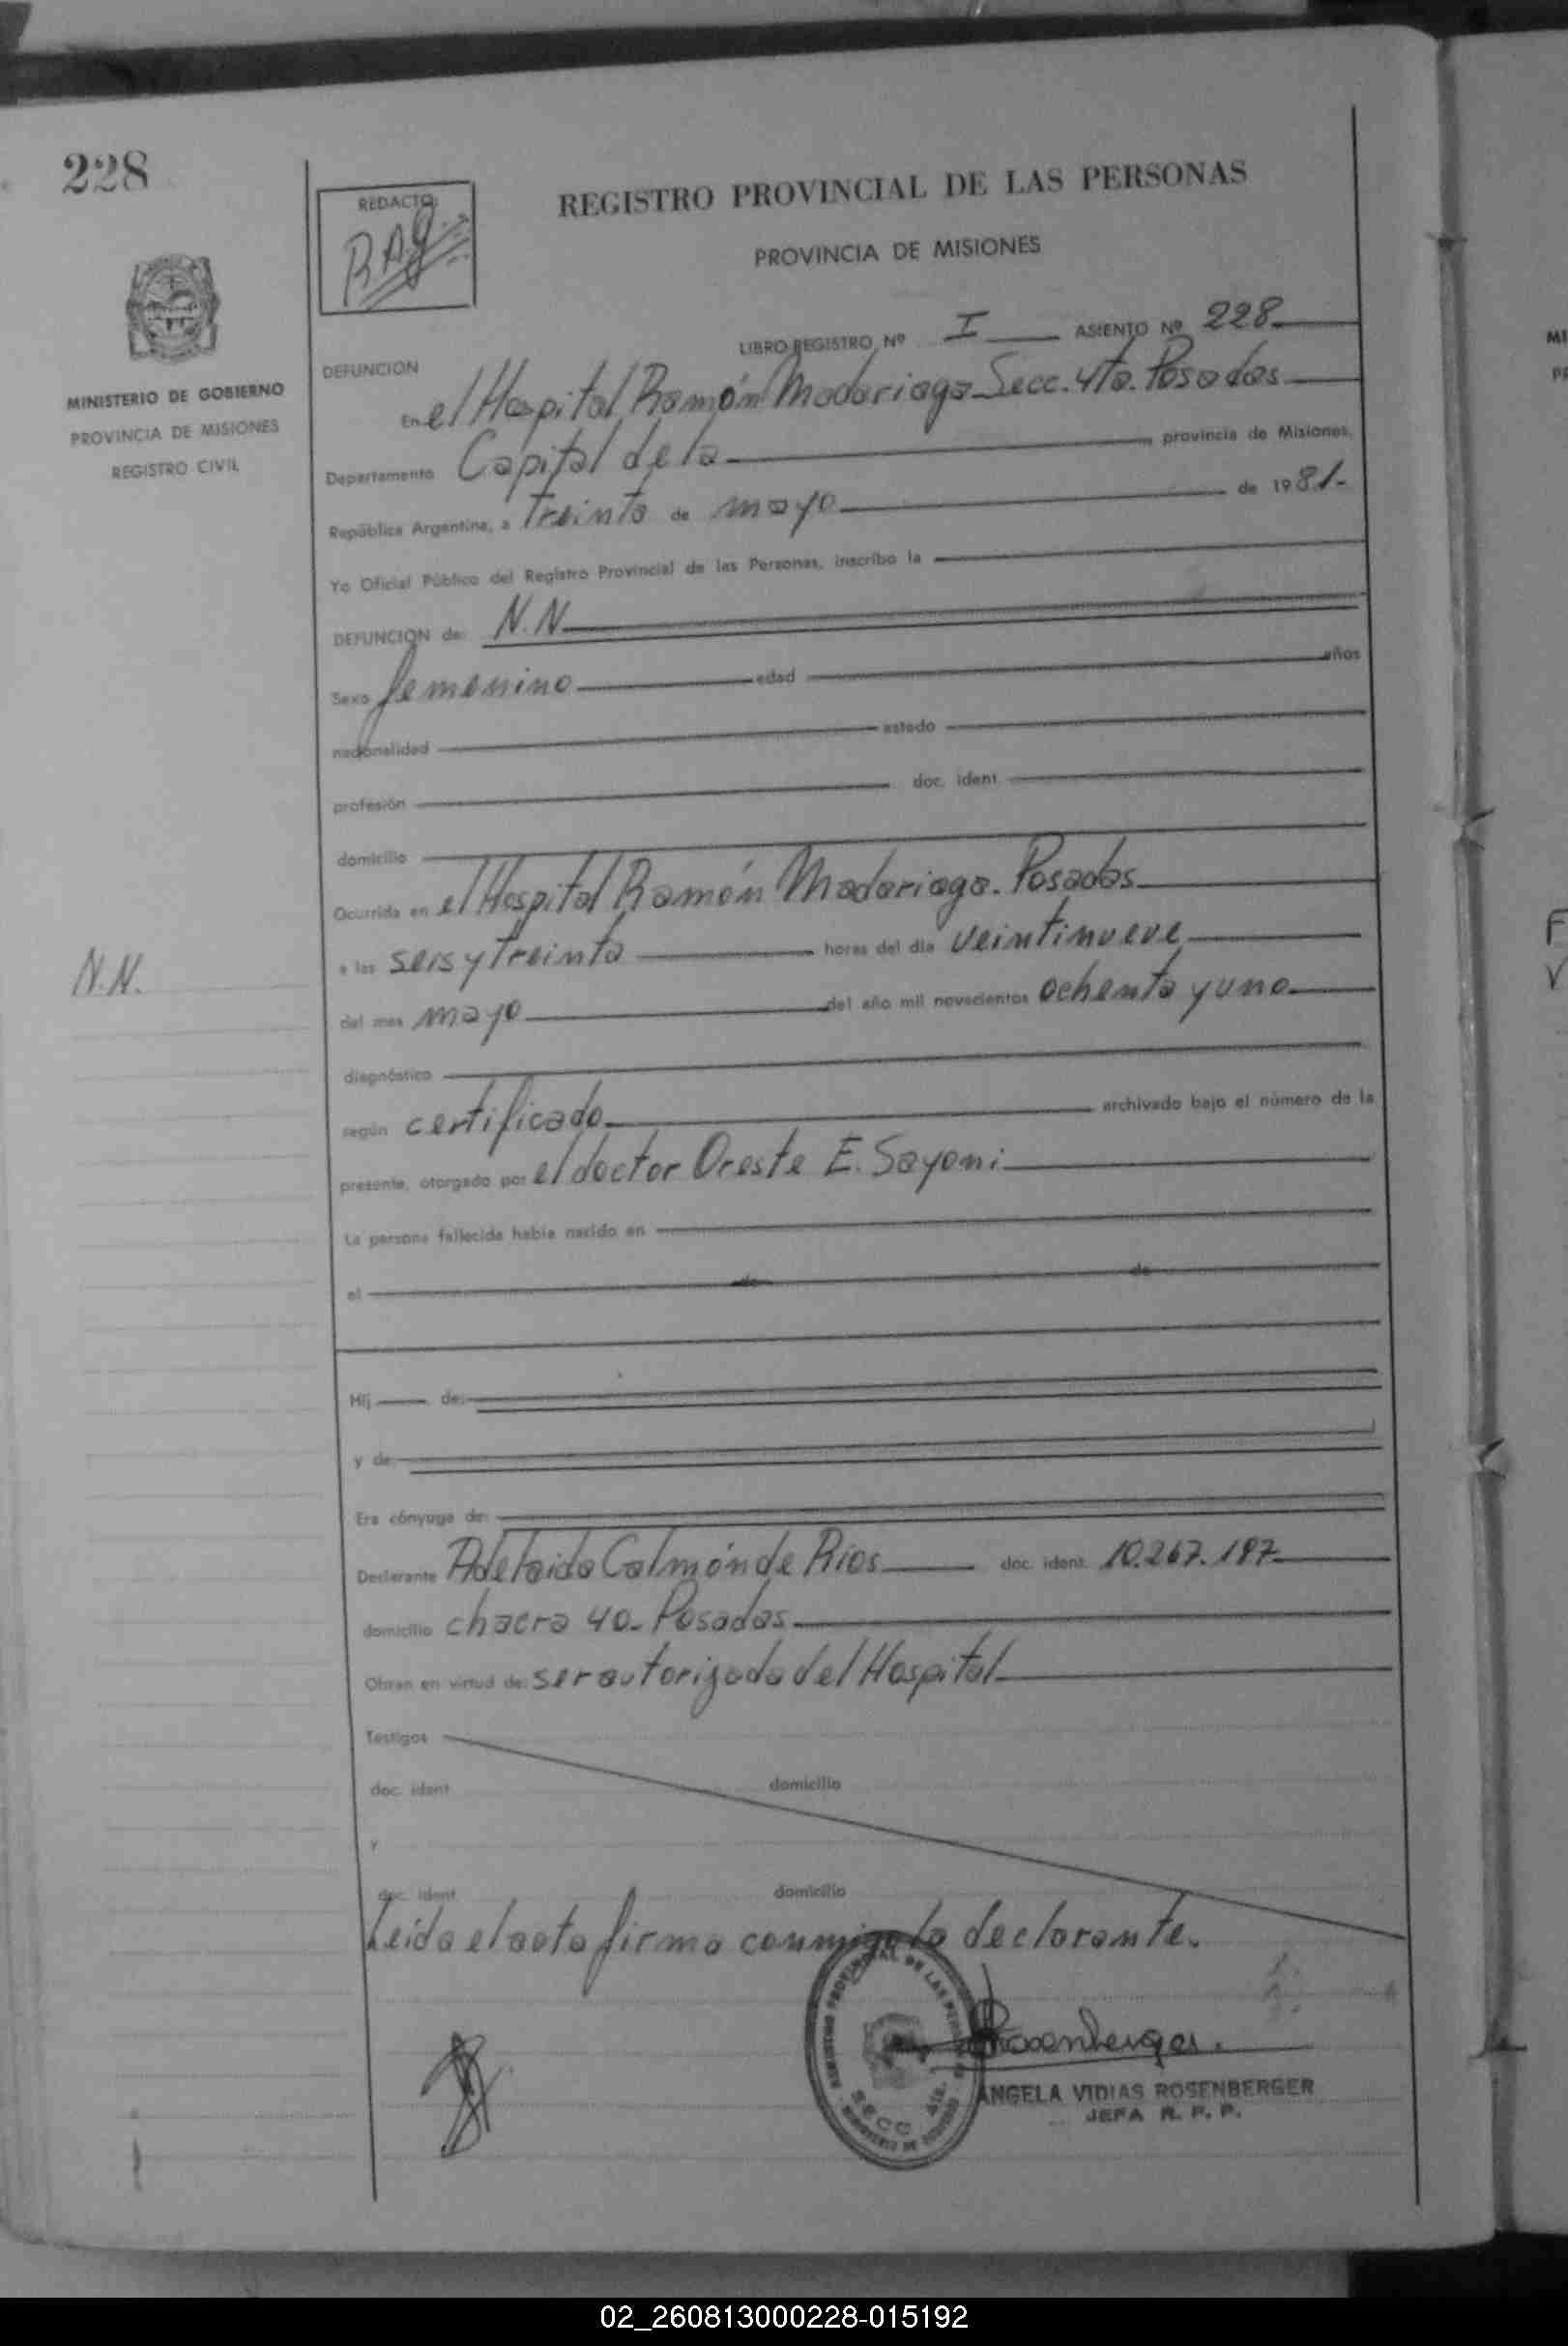 228
REDACTO:
REGISTRO PROVINCIAL DE LAS PERSONAS
PROVINCIA DE MISIONES
MINISTERIO DE GOBIERNO
PROVINCIA DE MISIONES
REGISTRO CIVIL
LIBRO REGISTRO Nº I ASIENTO Nº 228
DEFUNCION
En el Hospital Ramón Madariaga Secc. 4ta. Posadas
Departamento Capital de la provincia de Misiones,
República Argentina, a Treinta de mayo de 1981.
Yo Oficial Público del Registro Provincial de las Personas, inscribo la
DEFUNCION de: N.N.
Sexo femenino edad años
nacionalidad estado
profesión doc. ident.
domicilio
Ocurrida en el Hospital Ramón Madariaga. Posadas
a las seis y treinta horas del día veintinueve
N.N.
del mes mayo del año mil novecientos ochenta y uno
diagnóstico
según certificado archivado bajo el número de la
presente, otorgado por el doctor Oreste E. Sayoni
La persona fallecida había nacido en
el de de
Hij de:
y de:
Era cónyuge de:
Declarante Adelaida Calmón de Ríos doc. ident. 10.267.187
domicilio chacra 40. Posadas
Obran en virtud de: ser autorizada del Hospital
Testigos
doc. ident domicilio
y
doc. ident domicilio
Leida el acta firma conmigo la declarante.
Rosenberger.
ANGELA VIDIAS ROSENBERGER
JEFA R. P. P.
SECC. 4ta.
02_260813000228-015192